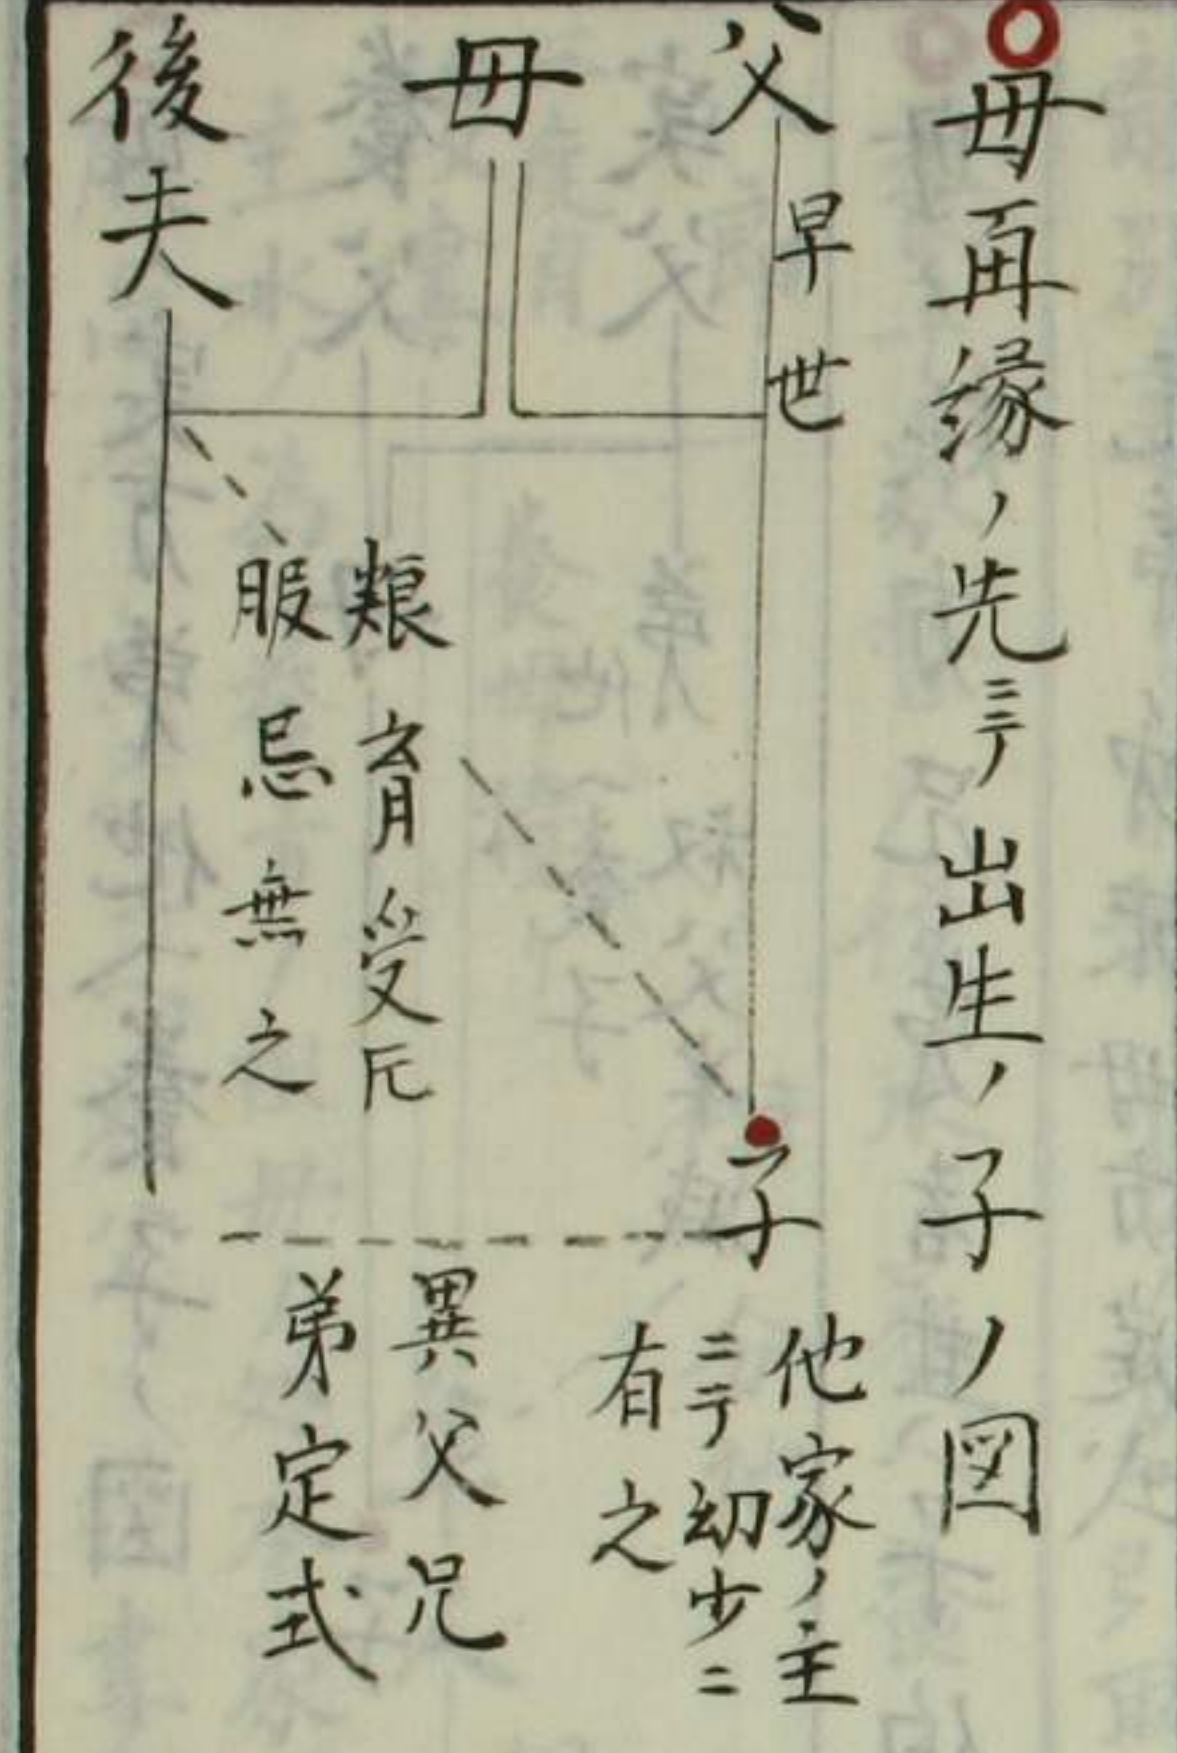 母再縁ノ先ニテ出生ノ子ノ図
父
早世
母
後夫
粮育受
服忌無之
子
他家ノ主
ニテ幼少ニ
有之
異父兄
弟定式